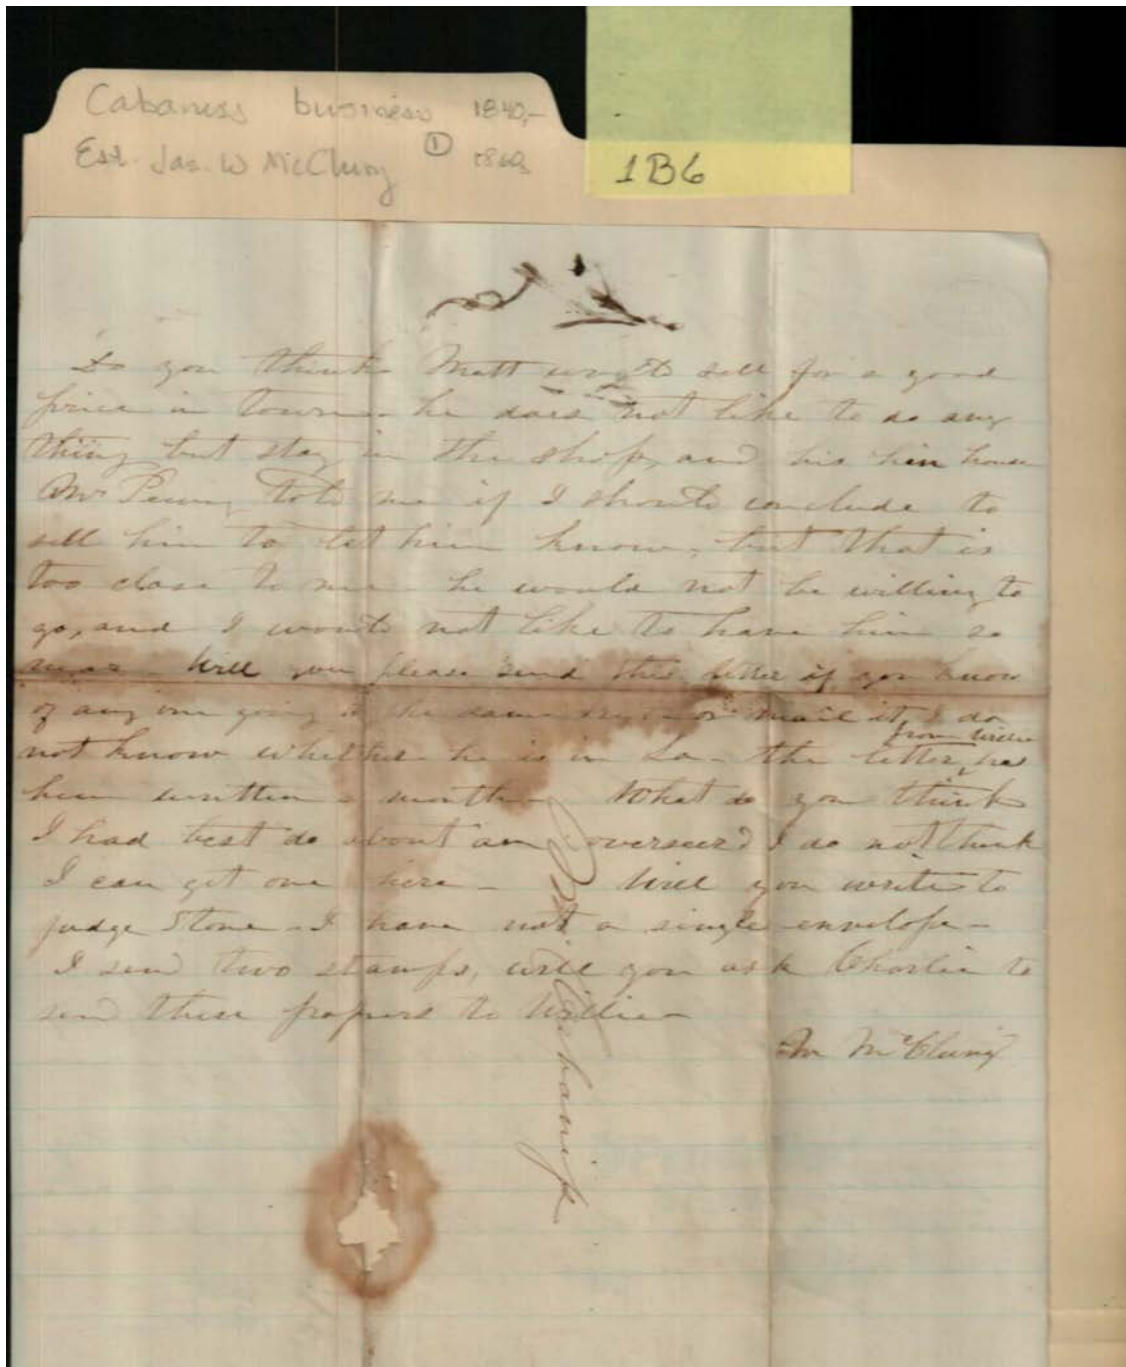 Cabaniss business 1840,-
Est. Jas. W McClung ① 1860s
1B6
Do you think Matt would sell for a good
price in town - he does not like to do any
thing but stay in the shop, and his hen house
Mr Penny told me if I should conclude to
sell him to let him know, but that is
too close to me he would not be willing to
go, and I would not like to have him so
near - Will you please send this letter if you know
of any one going to the same or mail it, I do
not know whether he is in La - the letter, has
from Willie
been written a month - What do you think
I had best do about an overseer I do not think
I can get one here - Will you write to
judge Stone - I have not a single envelope -
I send two stamps, will you ask Charlie to
send these papers to Willie -
M McClung
Cabaniss